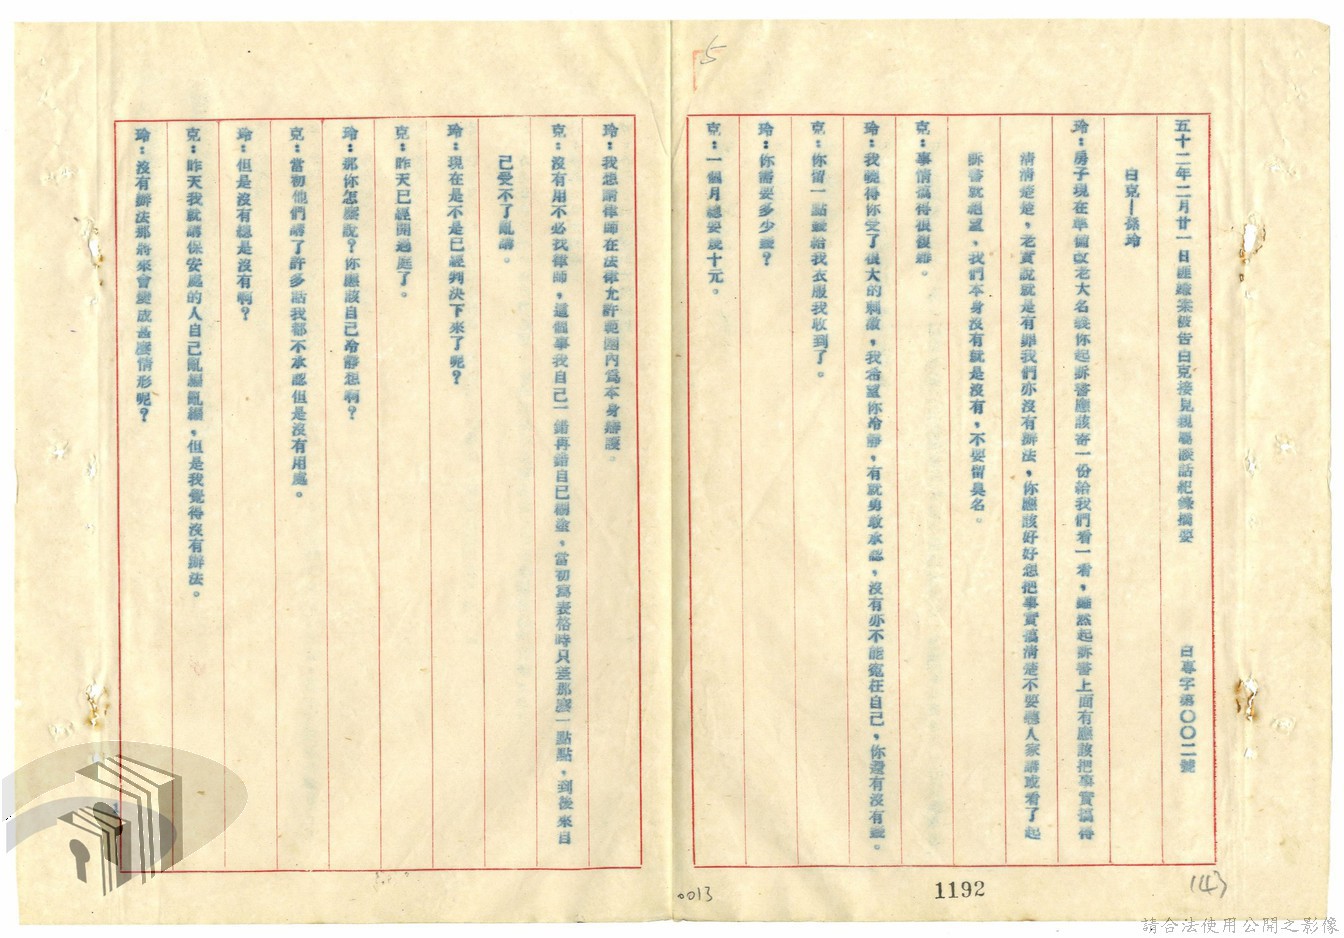 5
五十二年二月廿一日匪諜案被告白克接見親屬談話紀錄摘要　白專字第〇〇二號
白克—孫玲
玲：房子現在準備改老大名義你起訴書應該寄一份給我們看一看，雖然起訴書上面有應該把事實搞得
清清楚楚，老實說就是有罪我們亦沒有辦法，你應該好好想把事實搞清楚不要聽人家講或看了起
訴書就絕望，我們本身沒有就是沒有，不要留臭名。
克：事情搞得很複雜。
玲：我曉得你受了很大的刺激，我希望你冷靜，有就勇敢承認，沒有亦不能冤枉自己，你還有沒有錢。
克：你留一點錢給我衣服我收到了。
玲：你需要多少錢？
克：一個月總要幾十元。
玲：我想請律師在法律允許範圍內為本身辯護。
克：沒有用不必找律師，這個事我自己一錯再錯自己糊塗，當初寫表格時只差那麼一點點，到後來自
己受不了亂講。
玲：現在是不是已經判決下來了呢？
克：昨天已經開過庭了。
玲：那你怎麼說？你應該自己冷靜想啊？
克：當初他們講了許多話我都不承認但是沒有用處。
玲：但是沒有總是沒有啊？
克：昨天我就講保安處的人自己亂編亂纂，但是我覺得沒有辦法。
玲：沒有辦法那將來會變成甚麼情形呢？
0013
1192
(43)
請合法使用公開之影像